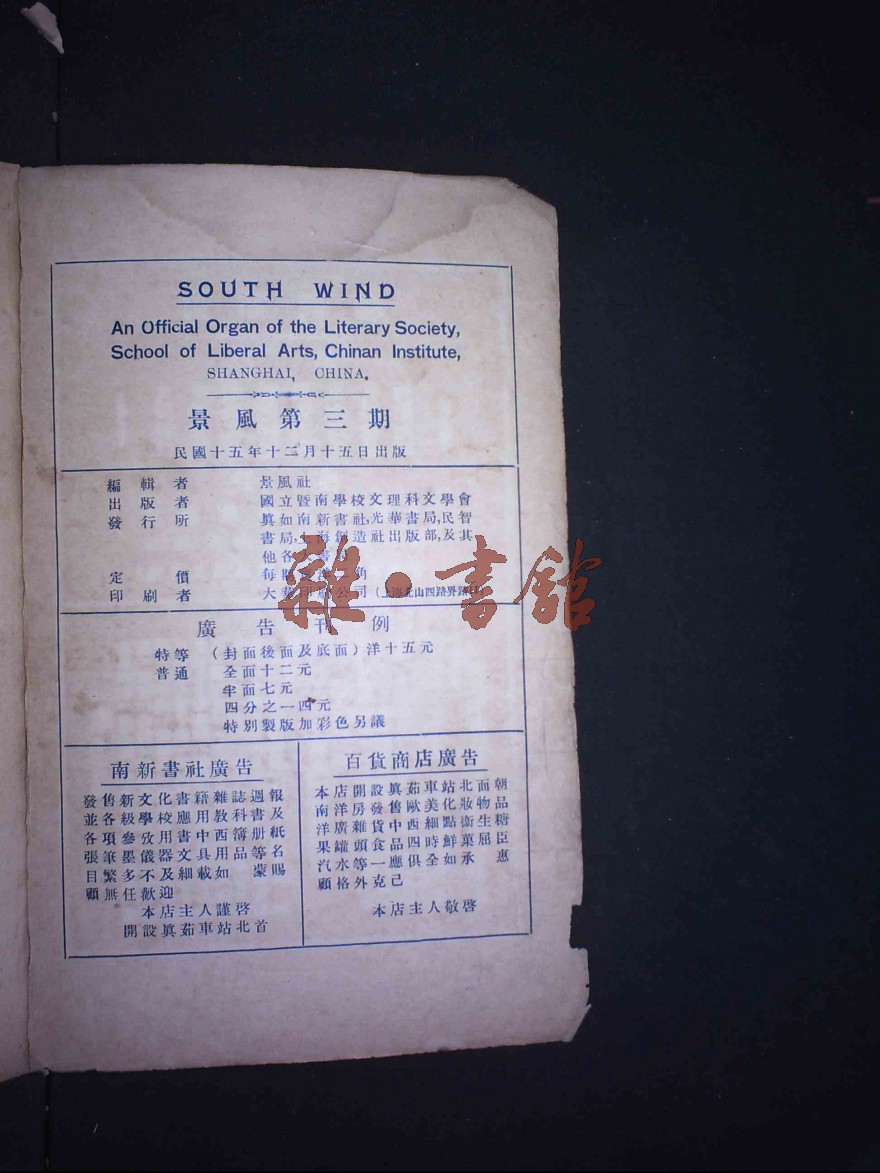 SOUTH WIND
An Official Organ of the Literary Society,
School of Liberal Arts, Chinan Institute,
SHANGHAI, CHINA.
景風第三期
民國十五年十二月十五日出版
編輯者 景風社
出版者 國立暨南學校文理科文學會
發行所 眞如南新書社,光華書局,民智
書局,上海創造社出版部,及其
他各
定價 每期 角
印刷者 大 印 公司
廣告刊例
特等 (封面後面及底面)洋十五元
普通 全面十二元
半面七元
四分之一四元
特別製版加彩色另議
南新書社廣告
發售新文化書籍雜誌週報
並各級學校應用教科書及
各項參攷用書中西簿册紙
張筆墨儀器文具用品等名
目繁多不及細載如 蒙賜
顧無任歡迎
本店主人謹啓
開設眞茹車站北首
百貨商店廣告
本店開設眞茹車站北面朝
南洋房發售歐美化妝物品
洋廣雜貨中西細點衞生糖
果罐頭食品四時鮮菓屈臣
汽水等一應俱全如承 惠
顧格外克己
本店主人敬啓
雜·書館